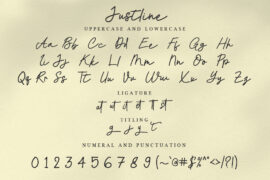 Justline
UPPERCASE AND LOWERCASE
Aa Bb Cc Dd Ee Ff Gg Hh
Ii Jj Kk Ll Mm Nn Oo Pp
Qq Rr Ss Tt Uu Vv Ww Xx Yy Zz
LIGATURE
TITLING
NUMERAL AND PUNCTUATION
0 1 2 3 4 5 6 7 8 9